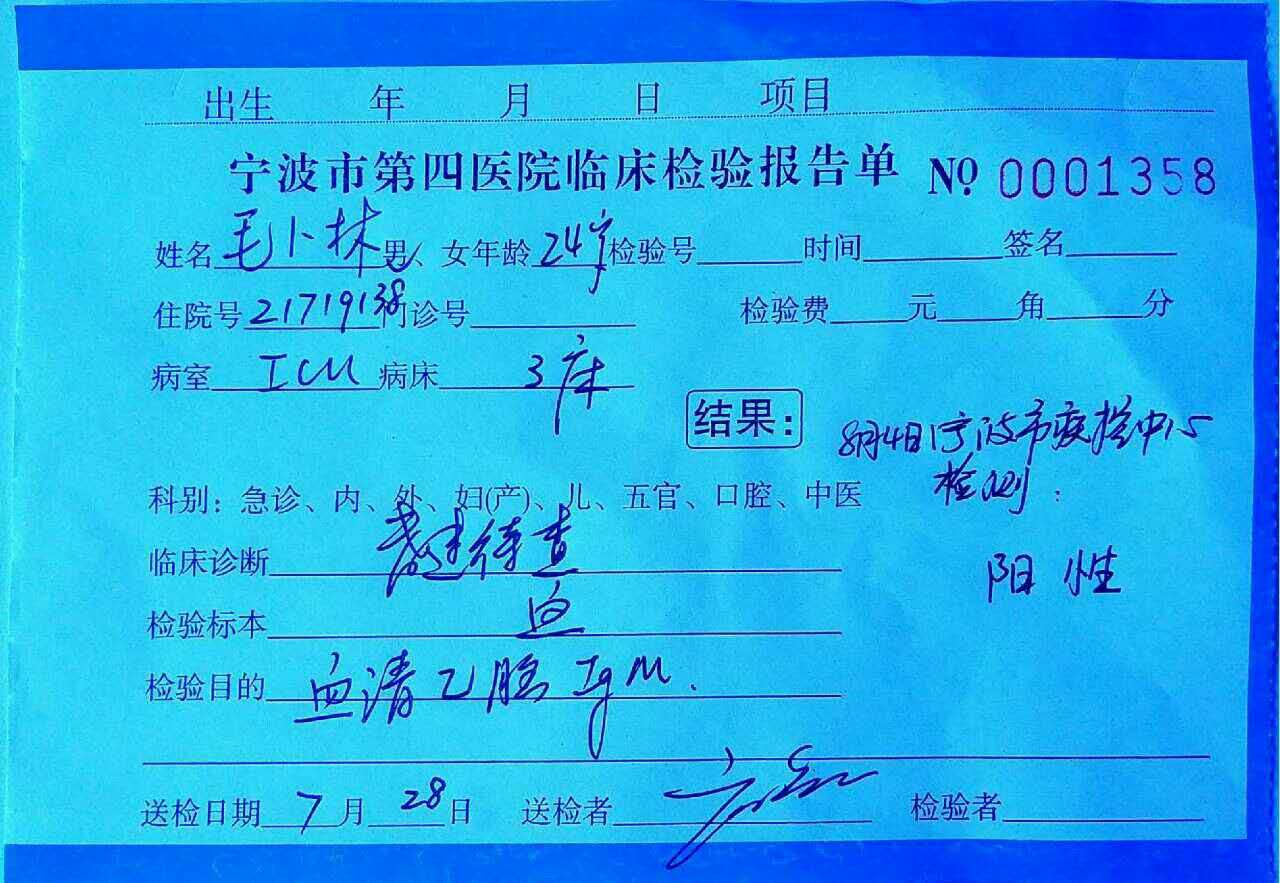 出生 年 月 日 项目
宁波市第四医院临床检验报告单 № 0001358
姓名 毛卜林 男、女 年龄 24岁 检验号 时间 签名
住院号 21719138 门诊号 检验费 元 角 分
病室 ICU 病床 3床
结果: 8月4日宁波市疾控中心
检测:
科别: 急诊、内、外、妇(产)、儿、五官、口腔、中医
阳性
临床诊断 待查
检验标本 血
检验目的 血清乙脑IgM.
送检日期 7月28日 送检者 检验者